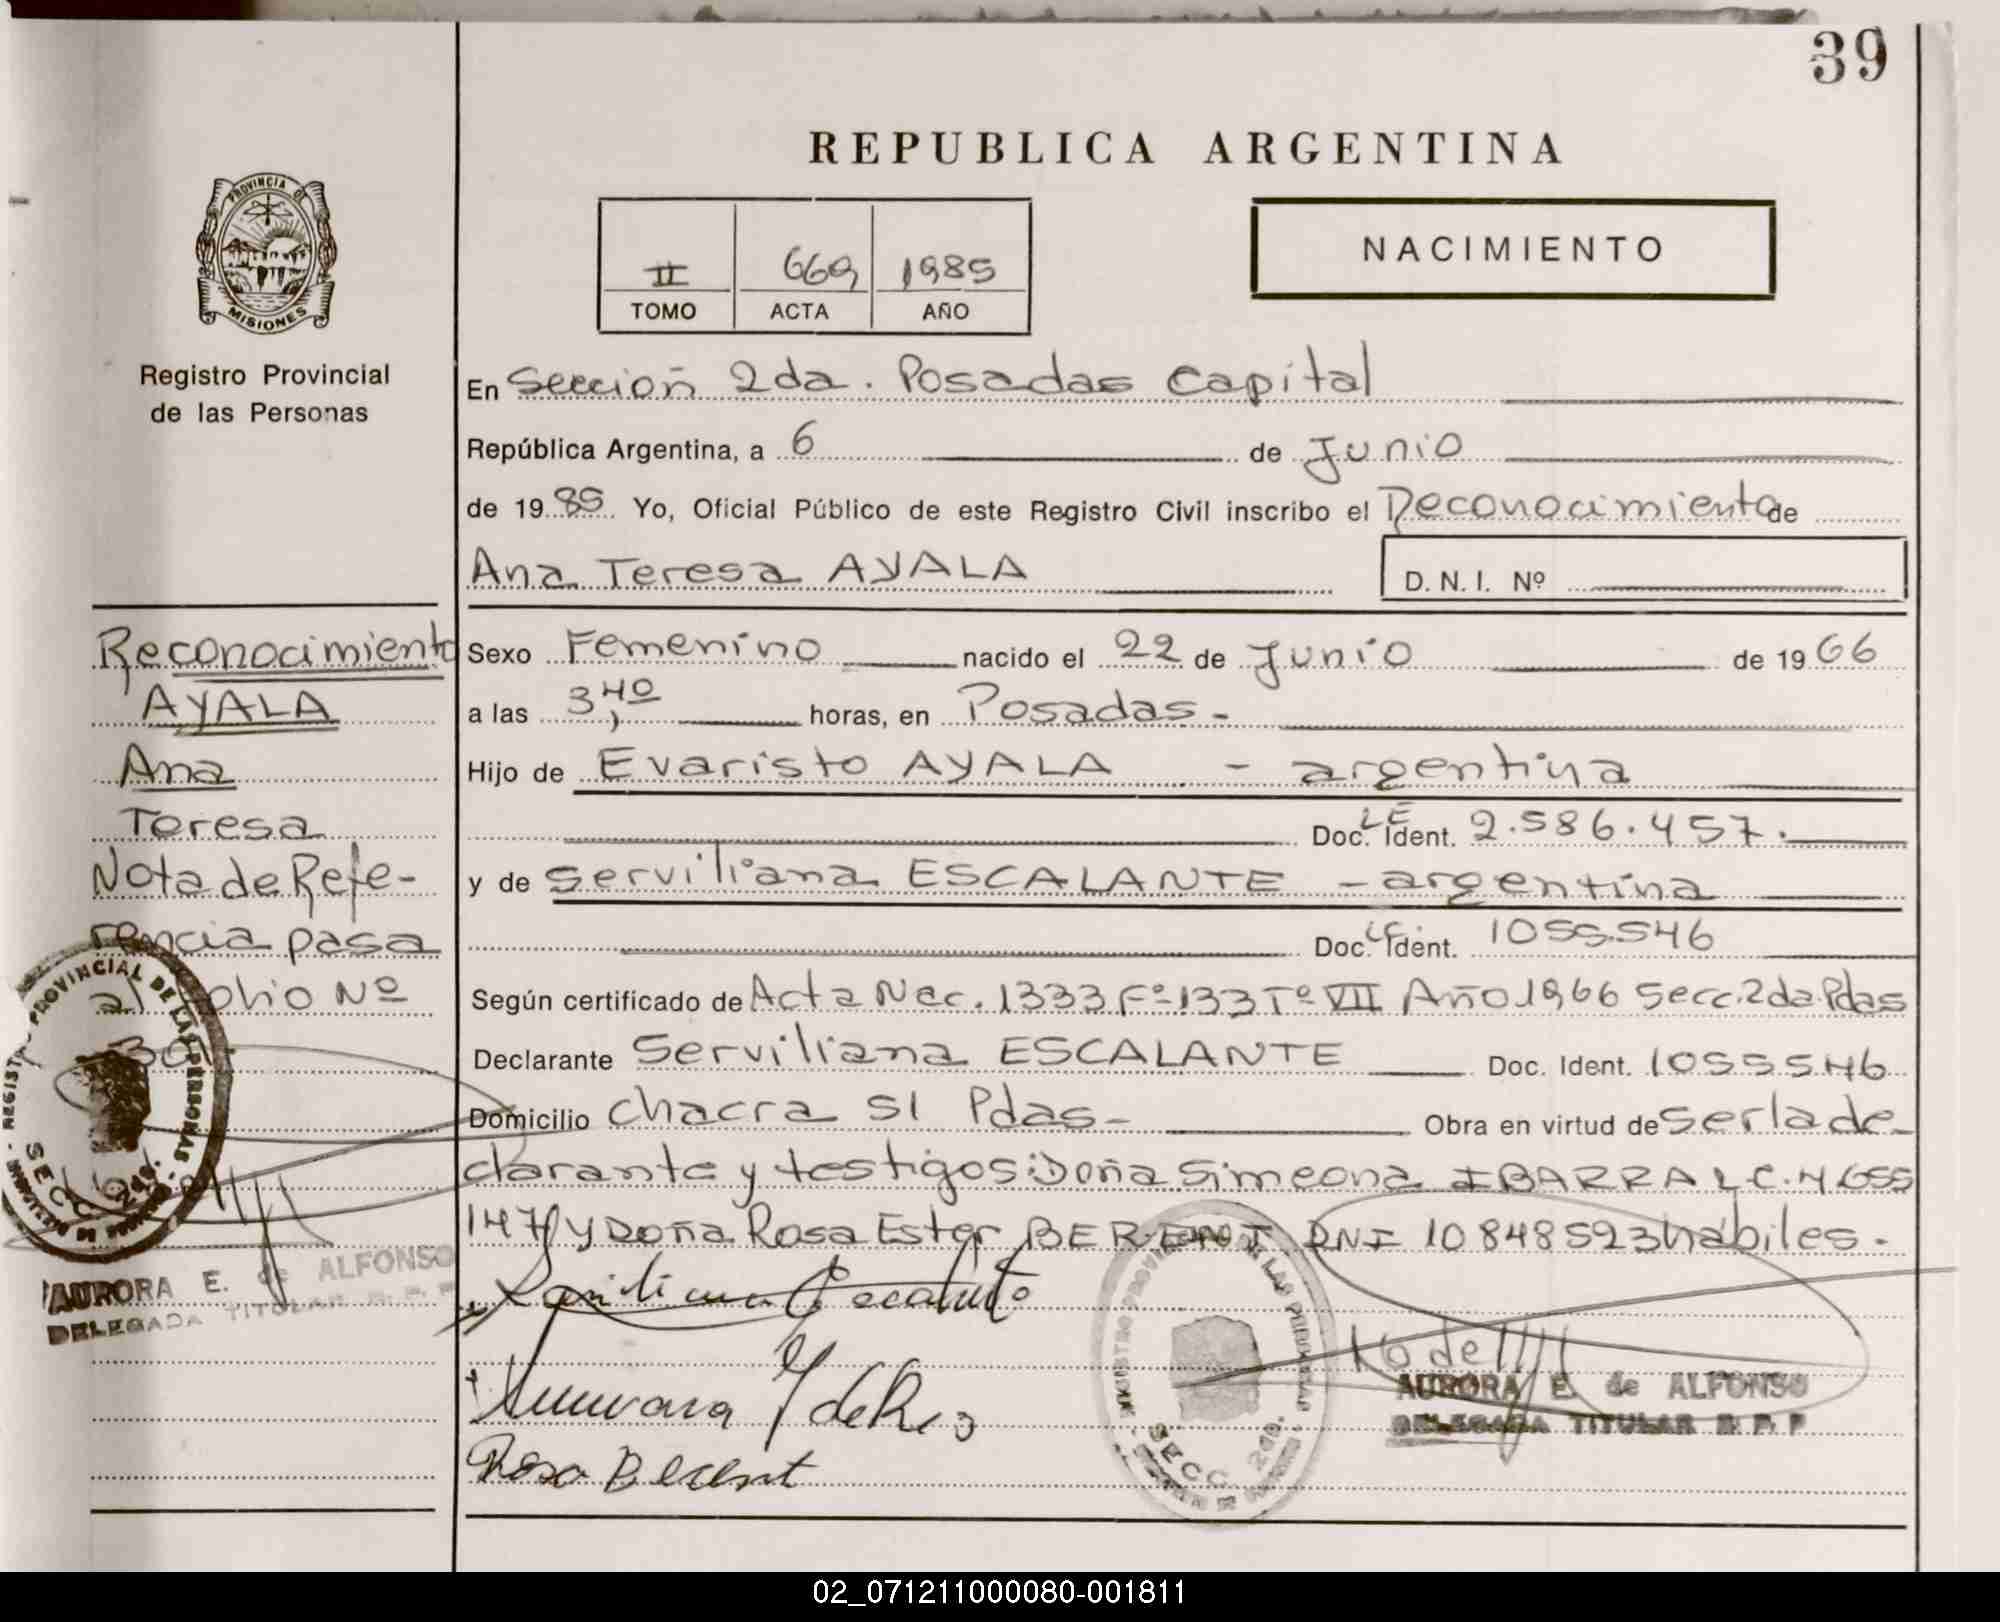 39
REPUBLICA ARGENTINA
PROVINCIA DE
MISIONES
Registro Provincial
de las Personas
II 669 1985
TOMO ACTA AÑO
NACIMIENTO
En Sección 2da. Posadas Capital
República Argentina, a 6 de Junio
de 1985 Yo, Oficial Público de este Registro Civil inscribo el Reconocimiento de
Ana Teresa AYALA D.N.I. Nº
Reconocimiento
AYALA
Ana
Teresa
Nota de Refe-
rencia pasa
al Folio Nº
Sexo Femenino nacido el 22 de Junio de 1966
a las 3,40 horas, en Posadas-
Hijo de Evaristo AYALA - argentina
Doc. LE Ident. 2.586.457.
y de Serviliana ESCALANTE - argentina
Doc. Ident. 1055.546
Según certificado de Acta Nac. 1333 Fº 133 Tº VII Año 1966 Secc. 2da Pdas
Declarante Serviliana ESCALANTE Doc. Ident. 1055546
Domicilio Chacra 51 Pdas- Obra en virtud de ser la de
clarante y testigos: Doña Simeona IBARRA L.C. 4.655
147 y Doña Rosa Ester DNI 10848523 habiles.-
REGISTRO PROVINCIAL DE LAS PERSONAS
SECC. 2da.
AURORA E. de ALFONSO
DELEGADA TITULAR R. P. P
REGISTRO PROVINCIAL DE LAS PERSONAS
SECC. 2da.
AURORA E. de ALFONSO
DELEGADA TITULAR R. P. P
02_071211000080-001811